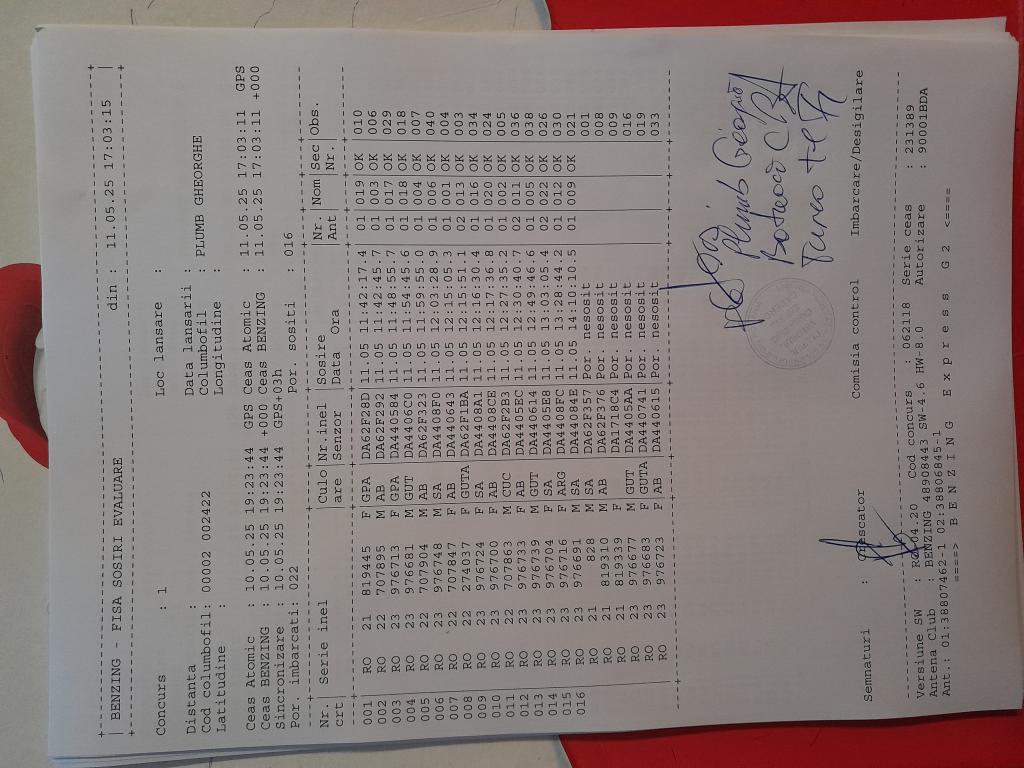 BENZING - FISA SOSIRI EVALUARE din : 11.05.25 17:03:15
Concurs : 1 Loc lansare :
Distanta : Data lansarii :
Cod columbofil: 00002 002422 Columbofil : PLUMB GHEORGHE
Latitudine : Longitudine :
Ceas Atomic : 10.05.25 19:23:44 GPS Ceas Atomic : 11.05.25 17:03:11 GPS
Ceas BENZING : 10.05.25 19:23:44 +000 Ceas BENZING : 11.05.25 17:03:11 +000
Sincronizare : 10.05.25 19:23:44 GPS+03h
Por. imbarcati: 022 Por. sositi : 016
Nr. | Serie inel |Culo|Nr.inel |Sosire |Nr. |Nom|Sec|Obs.
crt | |are |Senzor |Data Ora |Ant | |Nr.|
001 RO 21 819445 F GPA DA62F28D 11.05 11:42:17.4 01 019 OK 010
002 RO 22 707895 M AB DA62F292 11.05 11:42:45.7 01 003 OK 006
003 RO 23 976713 F GPA DA440584 11.05 11:48:55.7 01 017 OK 029
004 RO 23 976687 M GUT DA4406C0 11.05 11:54:45.6 01 018 OK 018
005 RO 22 707904 M AB DA62F323 11.05 11:59:55.0 01 004 OK 007
006 RO 23 976748 M SA DA4408F0 11.05 12:03:28.9 01 006 OK 040
007 RO 22 707847 F AB DA440643 11.05 12:15:05.3 01 001 OK 004
008 RO 22 274037 F GUTA DA62F1BA 11.05 12:15:51.1 02 013 OK 003
009 RO 23 976724 F SA DA4408A1 11.05 12:16:30.4 01 016 OK 034
010 RO 23 976700 F AB DA4408CE 11.05 12:17:36.8 01 020 OK 024
011 RO 22 707863 M CUC DA62F2B3 11.05 12:27:35.2 01 002 OK 005
012 RO 23 976733 F AB DA4405EC 11.05 12:30:40.7 02 011 OK 036
013 RO 23 976739 M GUT DA440614 11.05 12:49:46.6 01 005 OK 038
014 RO 23 976704 F SA DA4405B8 11.05 13:03:05.4 02 022 OK 026
015 RO 23 976716 F ARG DA4408FC 11.05 13:28:44.2 01 012 OK 030
016 RO 23 976691 M SA DA44084E 11.05 14:10:10.5 01 009 OK 021
RO 21 828 M SA DA62F357 Por. nesosit 001
RO 21 819310 M AB DA62F376 Por. nesosit 008
RO 21 819339 F DA1718C4 Por. nesosit 009
RO 23 976677 M GUT DA4405AA Por. nesosit 016
RO 23 976683 F GUTA DA440741 Por. nesosit 019
RO 23 976723 F AB DA440615 Por. nesosit 033
Plumb
Semnaturi : Crescator Comisia control Imbarcare/Desigilare
Versiune SW : Ro-04.20 Cod concurs : 062118 Serie ceas : 231389
Antena Club : BENZING 48908443 SW-4.6 HW-8.0 Autorizare : 90001BDA
Ant.: 01:38807462-1 02:38806845-1
====> B E N Z I N G E x p r e s s G 2 <====